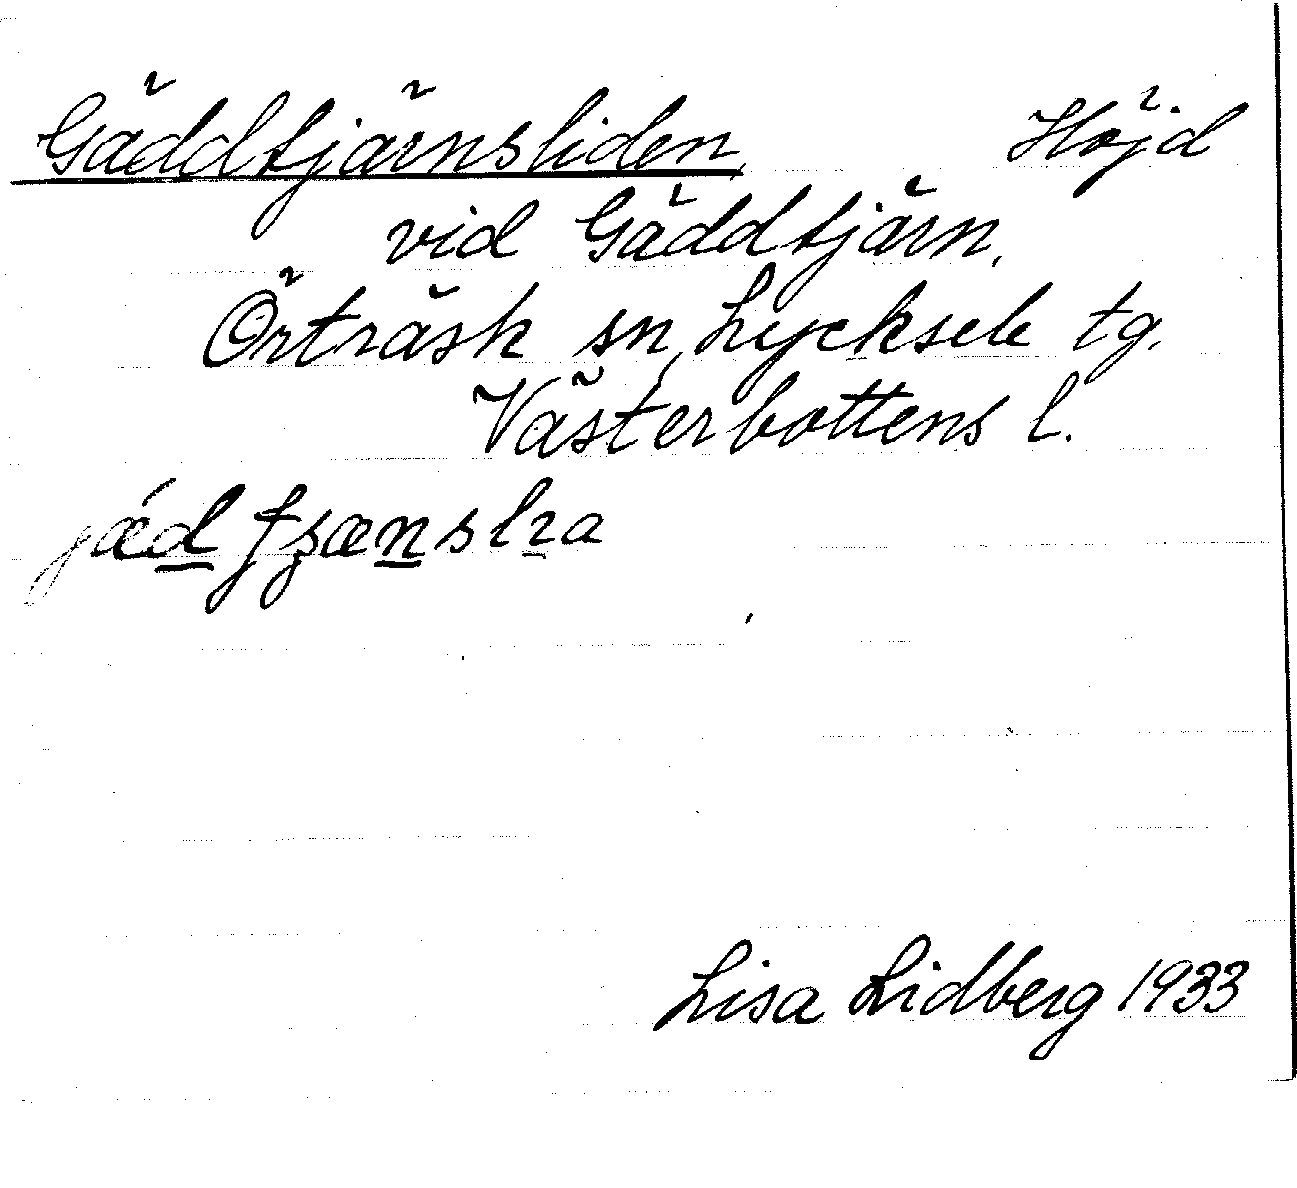 Gäddtjärnsliden, Höjd
vid Gäddtjärn,
Örträsk sn, Lycksele tg.
Västerbottens l.
Lisa Lidberg 1933